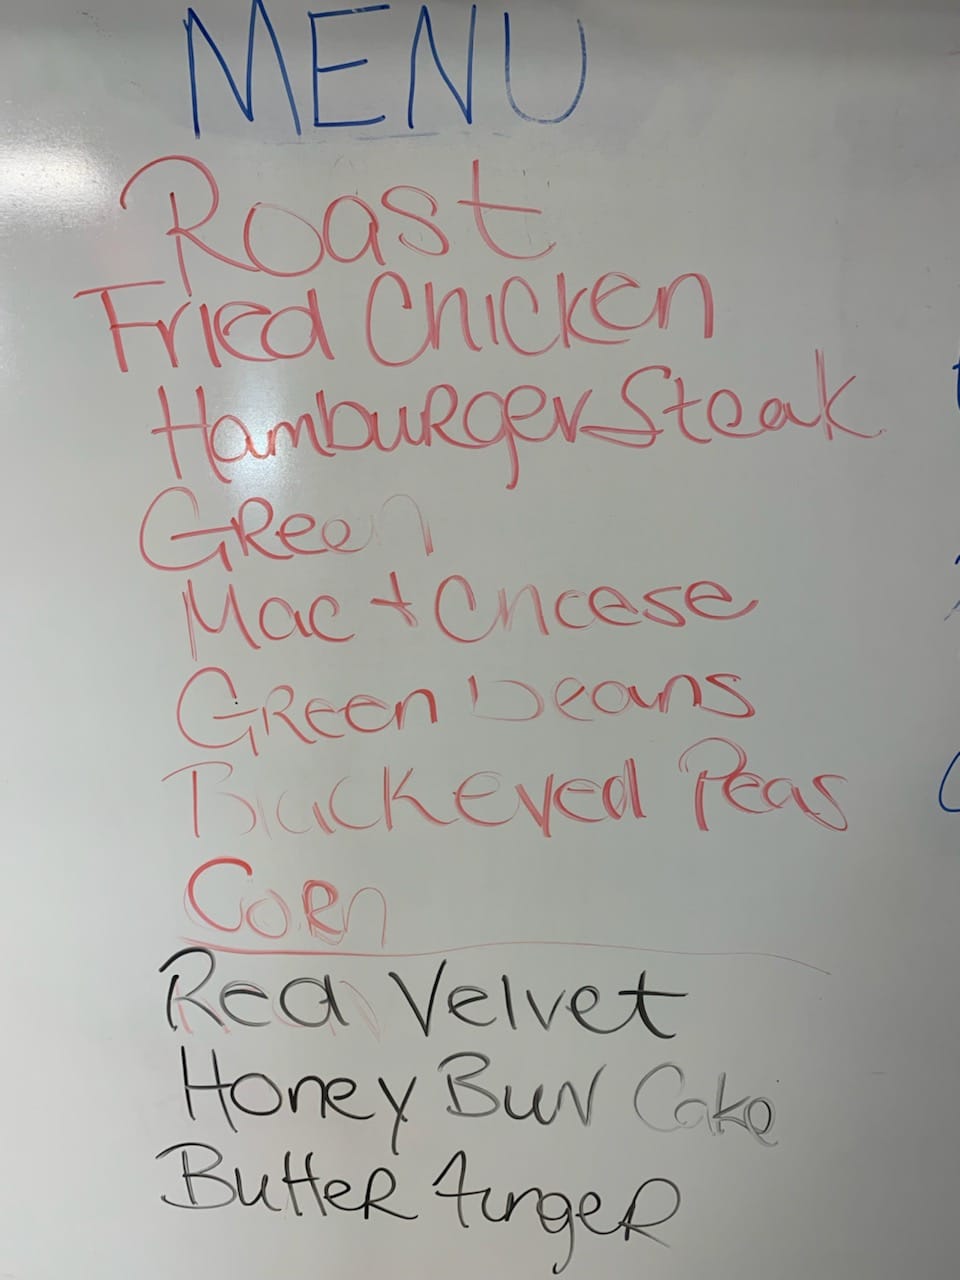 MENU
Roast
Fried Chicken
Hamburger Steak
Green
Mac + Cheese
Green beans
Blackeyed Peas
Corn
Red Velvet
Honey Bun Cake
Butter finger